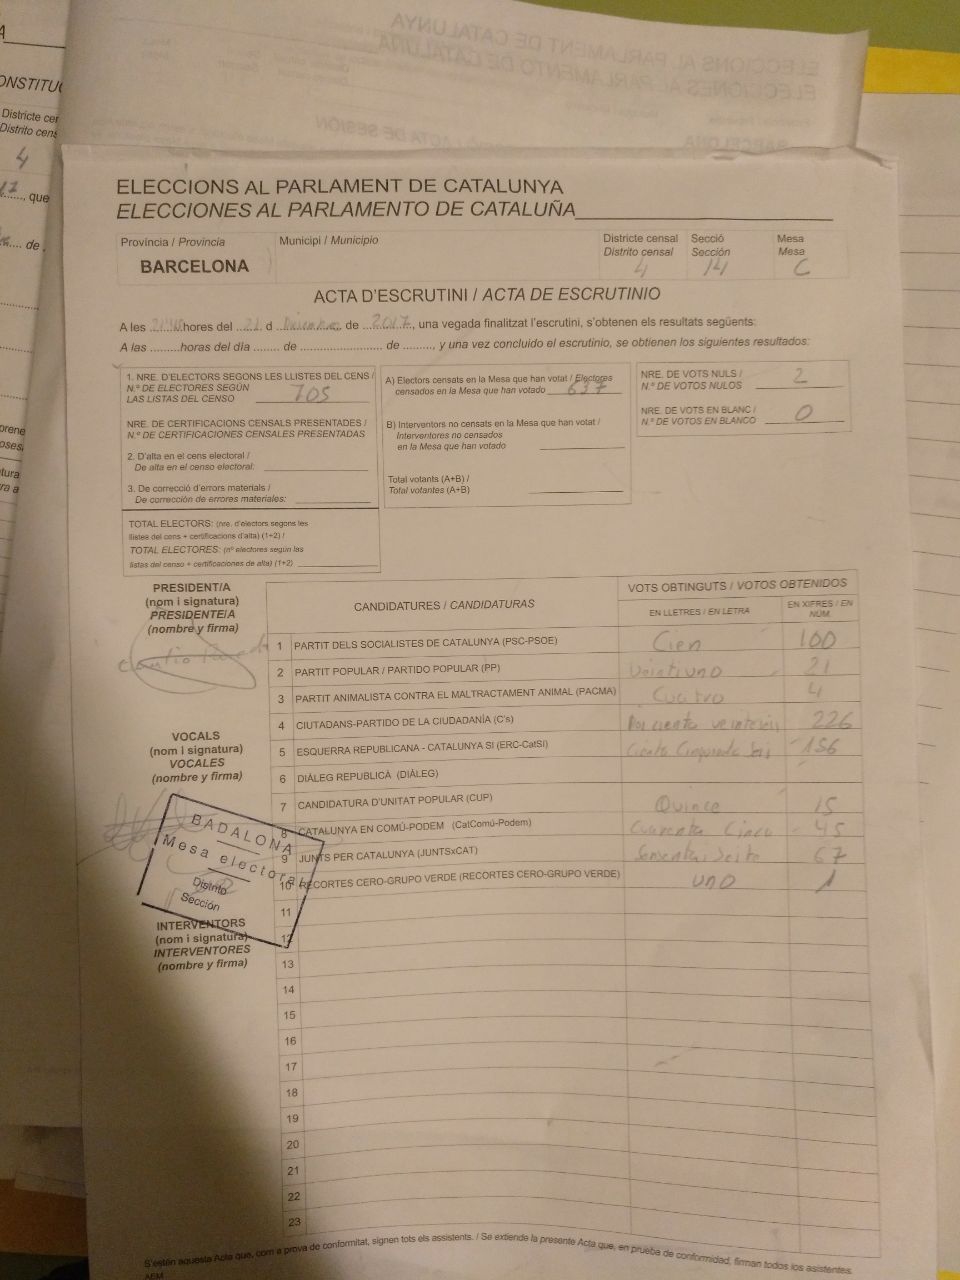 ELECCIONS AL PARLAMENT DE CATALUNYA
ELECCIONES AL PARLAMENTO DE CATALUÑA
ACTA DE SESIÓN
ONSTITU
Districte cen
Distrito cens
4
17, que
de
ELECCIONS AL PARLAMENT DE CATALUNYA
ELECCIONES AL PARLAMENTO DE CATALUÑA
Província / Provincia
BARCELONA
Municipi / Municipio
Districte censal
Distrito censal
4
Secció
Sección
14
Mesa
Mesa
C
ACTA D'ESCRUTINI / ACTA DE ESCRUTINIO
A les ........ hores del ..21.. d ..Diciembre.. de ..2017.., una vegada finalitzat l'escrutini, s'obtenen els resultats següents:
A las .........horas del día ........ de ......................... de ........., y una vez concluido el escrutinio, se obtienen los siguientes resultados:
1. NRE. D'ELECTORS SEGONS LES LLISTES DEL CENS /
N.º DE ELECTORES SEGÚN
LAS LISTAS DEL CENSO 705
NRE. DE CERTIFICACIONS CENSALS PRESENTADES /
N.º DE CERTIFICACIONES CENSALES PRESENTADAS
2. D'alta en el cens electoral /
De alta en el censo electoral:
3. De correcció d'errors materials /
De corrección de errores materiales:
TOTAL ELECTORS: (nre. d'electors segons les
llistes del cens + certificacions d'alta) (1+2) /
TOTAL ELECTORES: (nº electores según las
listas del censo + certificaciones de alta) (1+2)
A) Electors censats en la Mesa que han votat / Electores
censados en la Mesa que han votado 637
B) Interventors no censats en la Mesa que han votat /
Interventores no censados
en la Mesa que han votado
Total votants (A+B) /
Total votantes (A+B)
NRE. DE VOTS NULS /
N.º DE VOTOS NULOS 2
NRE. DE VOTS EN BLANC /
N.º DE VOTOS EN BLANCO 0
PRESIDENT/A
(nom i signatura)
PRESIDENTE/A
(nombre y firma)
VOCALS
(nom i signatura)
VOCALES
(nombre y firma)
BADALONA
Mesa electoral
Distrito
Sección
INTERVENTORS
(nom i signatura)
INTERVENTORES
(nombre y firma)
CANDIDATURES / CANDIDATURAS
VOTS OBTINGUTS / VOTOS OBTENIDOS
EN LLETRES / EN LETRA
EN XIFRES / EN NÚM.
1 PARTIT DELS SOCIALISTES DE CATALUNYA (PSC-PSOE) Cien 100
2 PARTIT POPULAR / PARTIDO POPULAR (PP) Veintiuno 21
3 PARTIT ANIMALISTA CONTRA EL MALTRACTAMENT ANIMAL (PACMA) Cuatro 4
4 CIUTADANS-PARTIDO DE LA CIUDADANÍA (C's) Doscientos veintiséis 226
5 ESQUERRA REPUBLICANA - CATALUNYA SI (ERC-CatSI) Ciento Cincuenta Seis 156
6 DIÀLEG REPUBLICÀ (DIÀLEG)
7 CANDIDATURA D'UNITAT POPULAR (CUP) Quince 15
8 CATALUNYA EN COMÚ-PODEM (CatComú-Podem) Cuarenta Cinco 45
9 JUNTS PER CATALUNYA (JUNTSxCAT) 67
10 RECORTES CERO-GRUPO VERDE (RECORTES CERO-GRUPO VERDE) UNO 1
11
12
13
14
15
16
17
18
19
20
21
22
23
S'estén aquesta Acta que, com a prova de conformitat, signen tots els assistents. / Se extiende la presente Acta que, en prueba de conformidad, firman todos los asistentes.